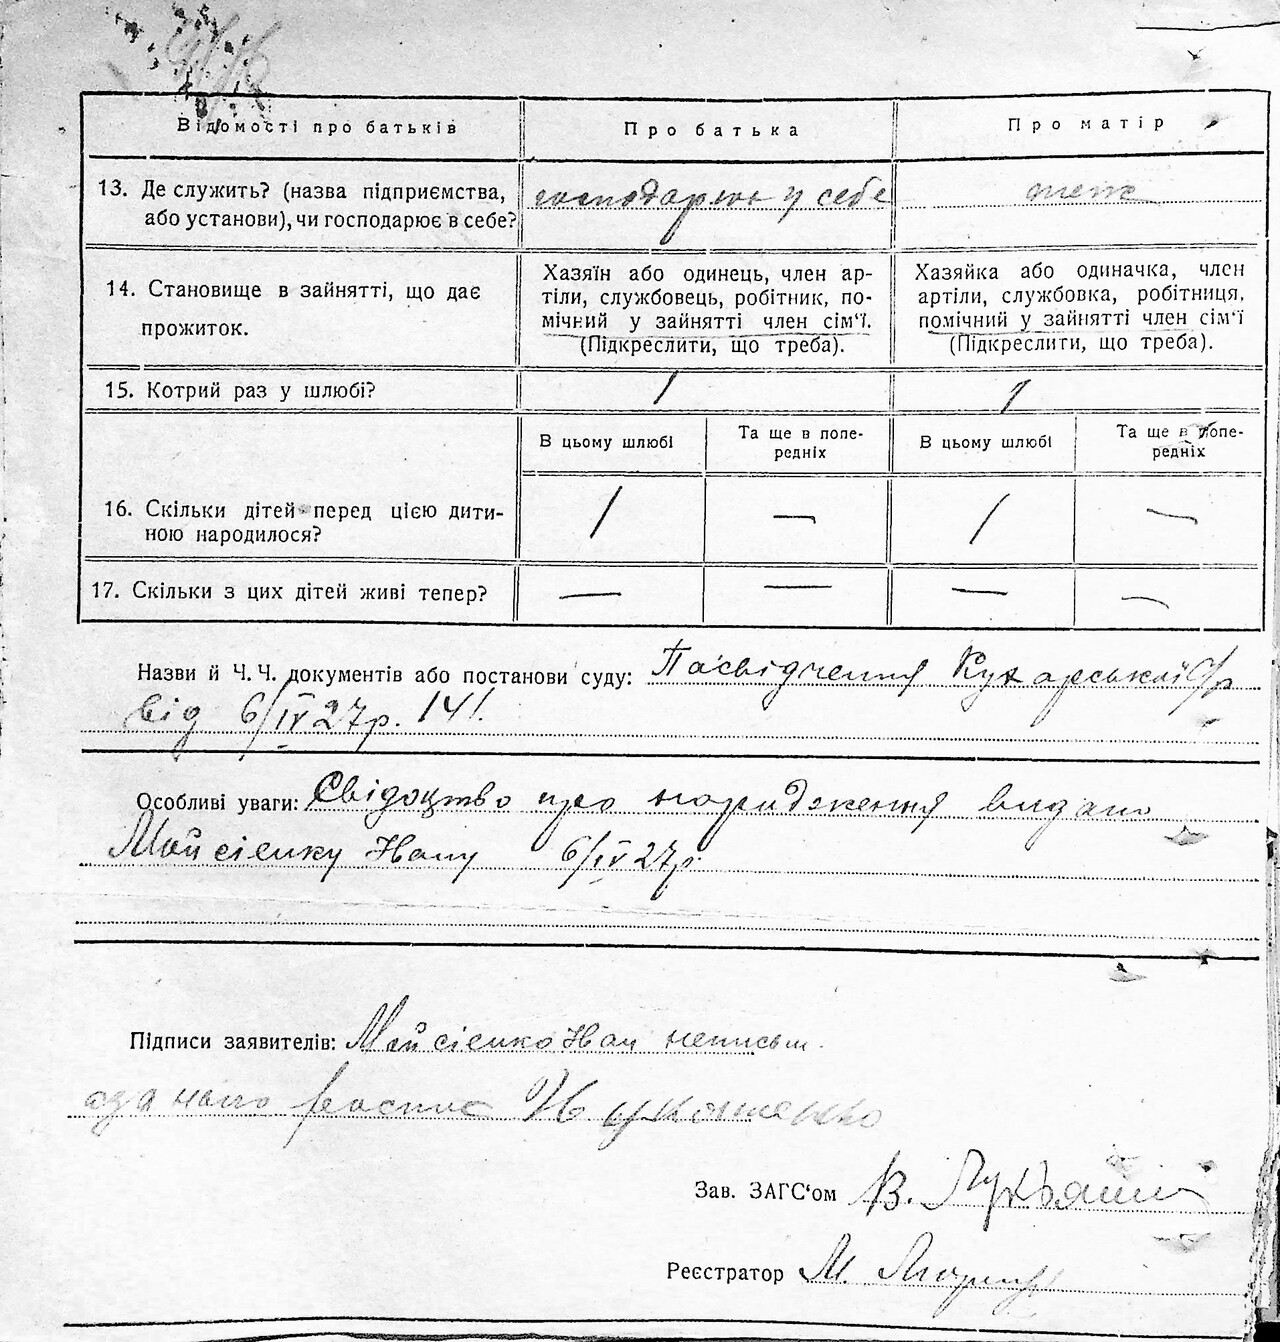 Відомості про батьків
Про батька
Про матір
13. Де служить? (назва підприємства, або установи), чи господарює в себе?
господарює у себе
теж
14. Становище в зайнятті, що дає прожиток.
Хазяїн або одинець, член ар-
тіли, службовець, робітник, по-
мічний у зайнятті член сім'ї.
(Підкреслити, що треба).
Хазяйка або одиначка, член
артіли, службовка, робітниця,
помічний у зайнятті член сім'ї
(Підкреслити, що треба).
15. Котрий раз у шлюбі?
1
1
В цьому шлюбі
Та ще в попе-
редніх
В цьому шлюбі
Та ще в попе-
редніх
16. Скільки дітей перед цією дити-
ною народилося?
1
—
1
—
17. Скільки з цих дітей живі тепер?
—
—
—
—
Назви й Ч. Ч. документів або постанови суду: Посвідчення Кухарської с/р
від 6/IV 27р. 141.
Особливі уваги: Свідоцтво про народження видано
Мойсієнку 6/IV 27р.
Підписи заявителів: Мойсієнко неписьм.
а за нього
Зав. ЗАГС'ом В.
Реєстратор М.